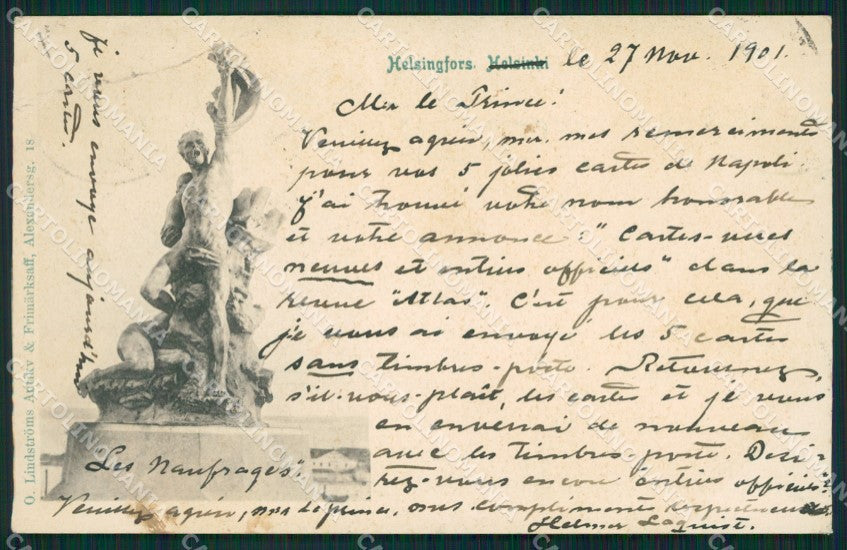 Helsingfors. Helsinki le 27 Nov. 1901.
Mr le Prince!
Veuillez agréer, mr. mes remerciments
pour vos 5 jolies cartes de Napoli.
J'ai trouvé votre nom honorable
et votre annonce: "Cartes-vues
neuves et entiers officiels" dans la
revue "Atlas". C'est pour cela, que
je vous ai envoyé les 5 cartes
sans timbres-poste. Retournez,
s'il-vous-plaît, les cartes et je vous
en enverrai de nouveau
avec les timbres-poste. Desi-
rez-vous encore "entiers officiels"?
Veuillez agréer, mr le prince, mes compliments respectueux
Helmer Lagus
"Les Naufragés"
je vous envoye aujourd'hui
5 cartes.
O. Lindströms Antikv & Frimärksaff, Alexandersg. 18
CARTOLINOMANIA